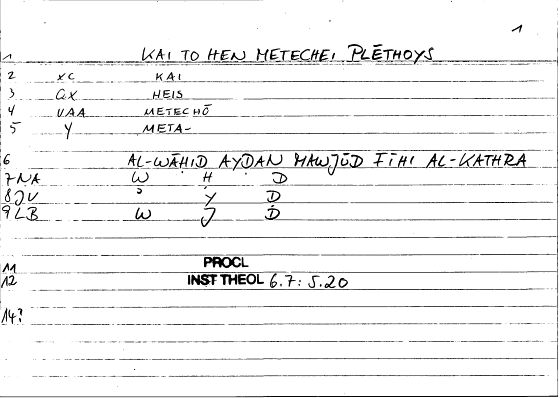 1
1 KAI TO HEN METECHEI PLĒTHOYS
2 xc KAI
3 ax HEIS
4 VAA METECHŌ
5 Y META-
6 AL-WĀḤID AYḌAN MAWJŪD FĪHI AL-KATHRA
7 NA W Ḥ D
8 JU ʾ Y Ḍ
9 LB W J D
11 PROCL
12 INST THEOL 6.7: 5.20
14?